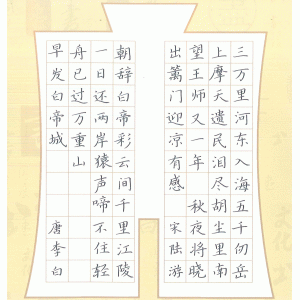 三万里河东入海五千仞岳
上摩天遗民泪尽胡尘里南
望王师又一年 秋夜将晓
出篱门迎凉有感 宋陆游
朝辞白帝彩云间千里江陵
一日还两岸猿声啼不住轻
舟已过万重山
早发白帝城 唐李白